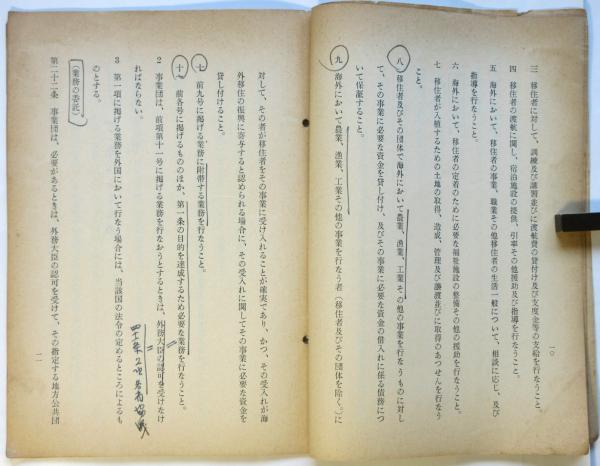 三 移住者に対して、訓練及び講習並びに渡航費の貸付け及び支度金等の支給を行なうこと。
四 移住者の渡航に関し、宿泊施設の提供、引率その他援助及び指導を行なうこと。
五 海外において、移住者の事業、職業その他移住者の生活一般について、相談に応じ、及び
指導を行なうこと。
六 海外において、移住者の定着のために必要な福祉施設の整備その他の援助を行なうこと。
七 移住者が入植するための土地の取得、造成、管理及び譲渡並びに取得のあつせんを行なう
こと。
八 移住者及びその団体で海外において農業、漁業、工業その他の事業を行なうものに対し
て、その事業に必要な資金を貸し付け、及びその事業に必要な資金の借入れに係る債務につ
いて保証すること。
九 海外において農業、漁業、工業その他の事業を行なう者(移住者及びその団体を除く。)に
一〇
対して、その者が移住者をその事業に受け入れることが確実であり、かつ、その受入れが海
外移住の振興に寄与すると認められる場合に、その受入れに関してその事業に必要な資金を
貸し付けること。
十 前九号に掲げる業務に附帯する業務を行なうこと。
十一 前各号に掲げるもののほか、第一条の目的を達成するため必要な業務を行なうこと。
2 事業団は、前項第十一号に掲げる業務を行なおうとするときは、外務大臣の認可を受けなけ
ればならない。
3 第一項に掲げる業務を外国において行なう場合には、当該国の法令の定めるところによるも
のとする。
(業務の委託)
第二十二条 事業団は、必要があるときは、外務大臣の認可を受けて、その指定する地方公共団
一一